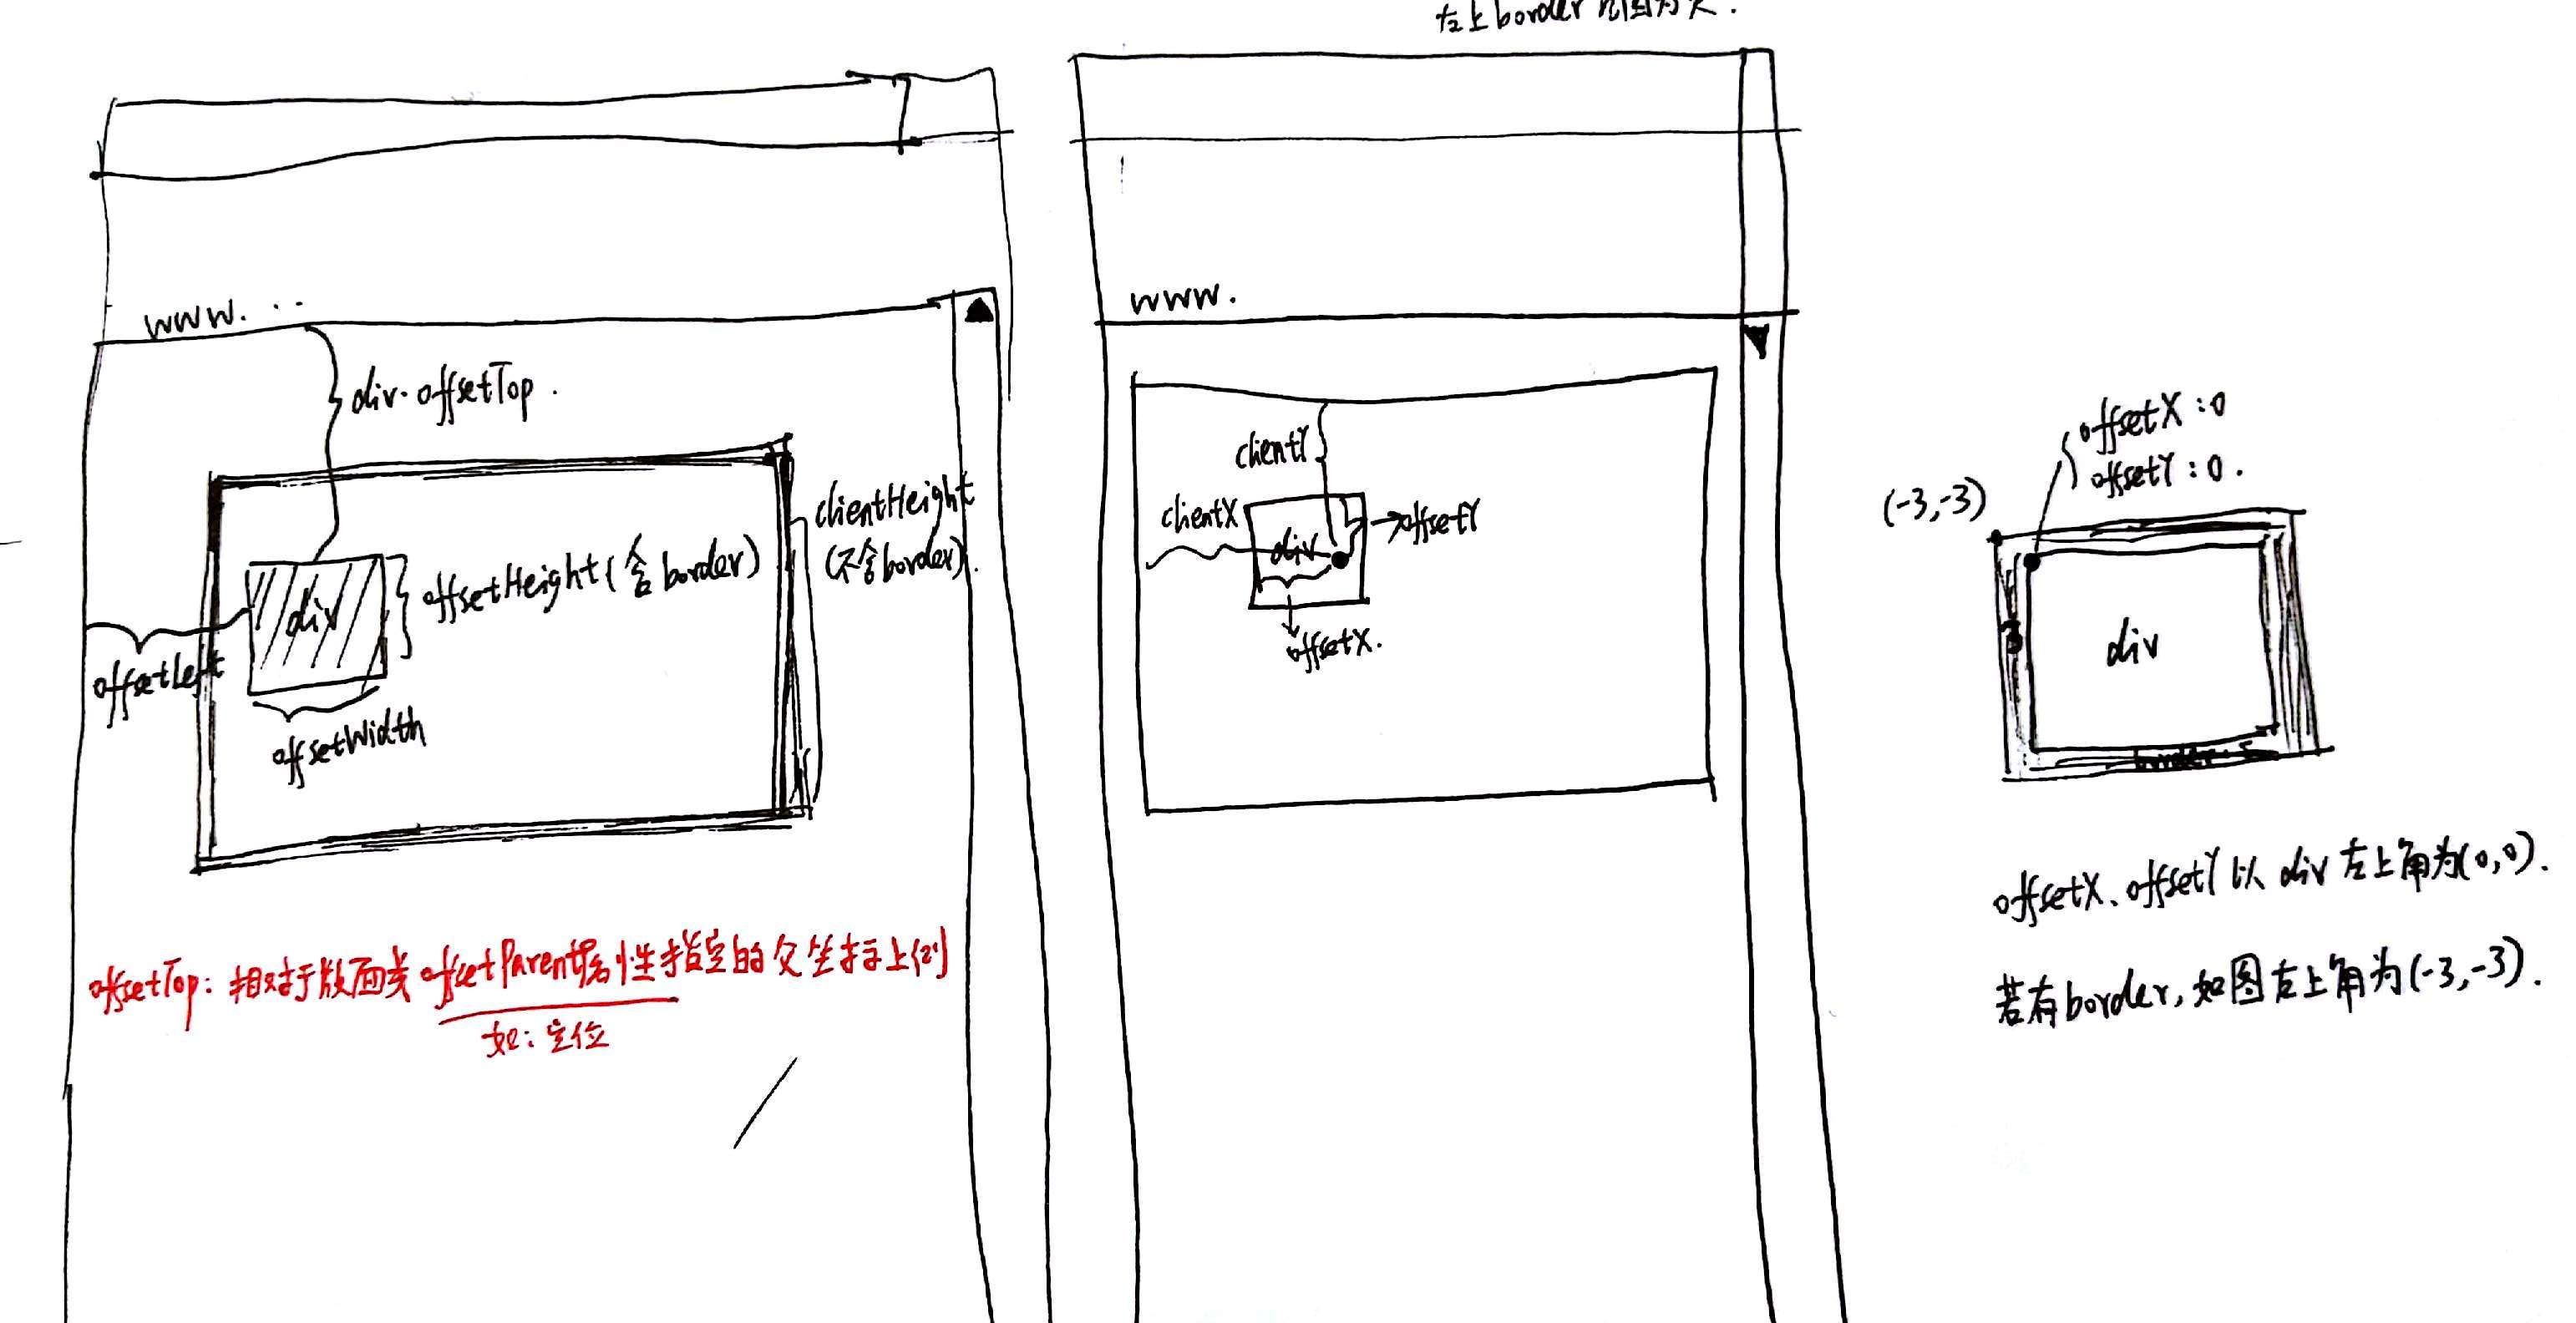 左上border
www. ··
div·offsetTop.
clientHeight
(不含border).
offsetHeight(含border)
div
offsetLeft
offsetWidth
offsetTop: 相对于版面或offsetParent属性指定的父坐标上侧
如: 定位
www.
clientY
clientX
offsetY
div
offsetX.
offsetX:0
offsetY:0.
(-3,-3)
3
div
offsetX、offsetY以div左上角为(0,0).
若有border,如图左上角为(-3,-3).